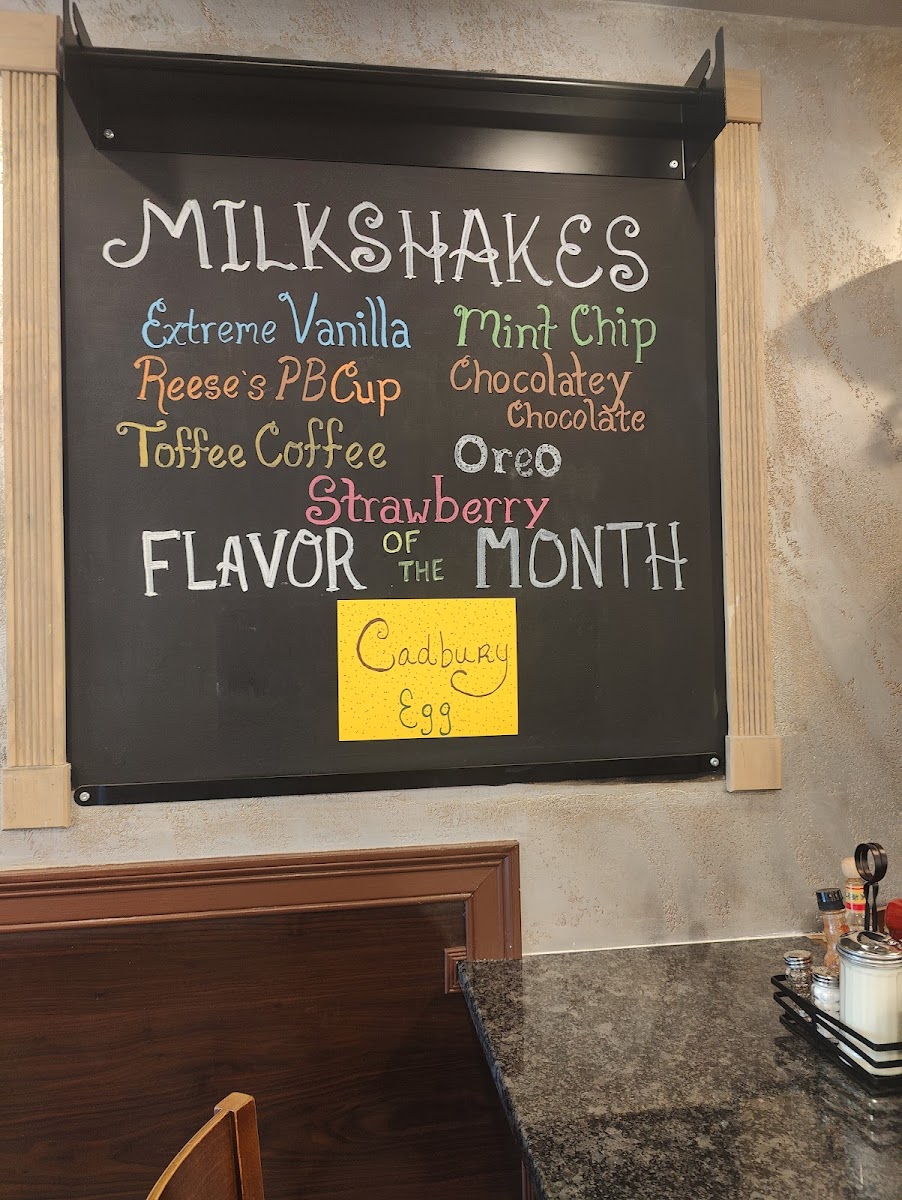 MILKSHAKES
Extreme Vanilla
Mint Chip
Reese's PB Cup
Chocolatey
Chocolate
Toffee Coffee
Oreo
Strawberry
FLAVOR OF THE MONTH
Cadbury
Egg